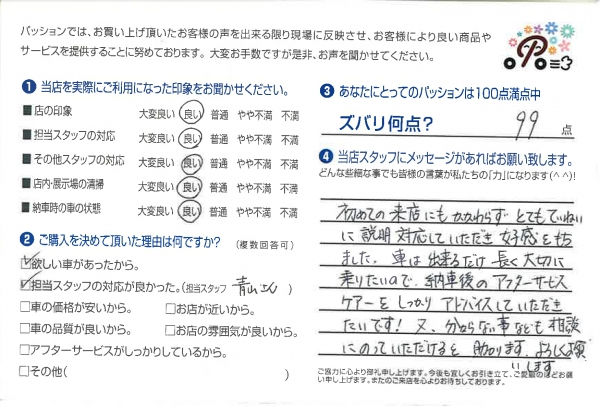 パッションでは、お買い上げ頂いたお客様の声を出来る限り現場に反映させ、お客様により良い商品や
サービスを提供することに努めております。大変お手数ですが是非、お声を聞かせてください。
❶ 当店を実際にご利用になった印象をお聞かせください。
■店の印象 大変良い 良い 普通 やや不満 不満
■担当スタッフの対応 大変良い 良い 普通 やや不満 不満
■その他スタッフの対応 大変良い 良い 普通 やや不満 不満
■店内・展示場の清掃 大変良い 良い 普通 やや不満 不満
■納車時の車の状態 大変良い 良い 普通 やや不満 不満
❷ ご購入を決めて頂いた理由は何ですか? (複数回答可)
☑欲しい車があったから。
☑担当スタッフの対応が良かった。(担当スタッフ 青山 )
□車の価格が安いから。 □お店が近いから。
□車の品質が良いから。 □お店の雰囲気が良いから。
□アフターサービスがしっかりしているから。
□その他( )
❸ あなたにとってのパッションは100点満点中
ズバリ何点? 99 点
❹ 当店スタッフにメッセージがあればお願い致します。
どんな些細な事でも皆様の言葉が私たちの「力」になります(^^)!
初めての来店にもかかわらずとてもていねい
に説明対応していただき好感を持ち
ました。車は出来るだけ長く大切に
乗りたいので、納車後のアフターサービス
ケアーをしっかりアドバイスしていただき
たいです!又、分らない事なども相談
にのっていただけると助かります。よろしくお願
いします
ご協力に心より御礼申し上げます。今後も宜しくお引き立て、ご愛顧のほどお願
い申し上げます。またのご来店を心よりお待ちしております。